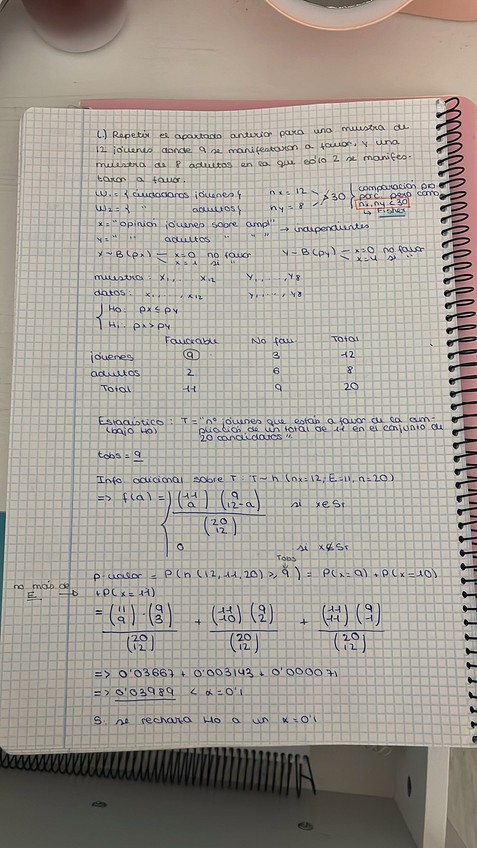 c) Repetir el apartado anterior para una muestra de
12 jóvenes donde 9 se manifestaron a favor, y una
muestra de 8 adultos en la que sólo 2 se manifes-
taron a favor.
W₁ = { ciudadanos jóvenes }   nx = 12   30   comparación pro
W₂ = { " adultos }   ny = 8   porc. pero como
nx, ny < 30
↳ Fisher
X = "opinión jóvenes sobre ampl" → independientes
Y = " " adultos " "
X ~ B(px) — x=0 no favor   Y ~ B(py) — x=0 no favor
x=1 si "   x=1 si "
muestra: X₁, ..., X₁₂   Y₁, ..., Y₈
datos: x₁, ..., x₁₂   y₁, ..., y₈
H₀: px ≤ py
H₁: px > py
Favorable   No fav.   Total
jóvenes   9   3   12
adultos   2   6   8
Total   11   9   20
Estadístico: T = "nº jóvenes que están a favor de la am-
(bajo H₀)   pliación de un total de 11 en el conjunto de
20 candidatos".
tobs = 9
Info. adicional sobre T: T ~ h (nx=12, E=11, n=20)
=> f(a) = { (11 a) (9 12-a) / (20 12)   si x∈Sr
0   si x∉Sr
Tobs
p-valor = P(h(12,11,20) ≥ 9) = P(x=9) + P(x=10)
no más de E → + P(x=11)
= (11 9)·(9 3) / (20 12) + (11 10)(9 2) / (20 12) + (11 11)(9 1) / (20 12)
=> 0'03667 + 0'003143 + 0'000071
=> 0'03989 < α = 0'1
S: se rechaza H₀ a un α = 0'1